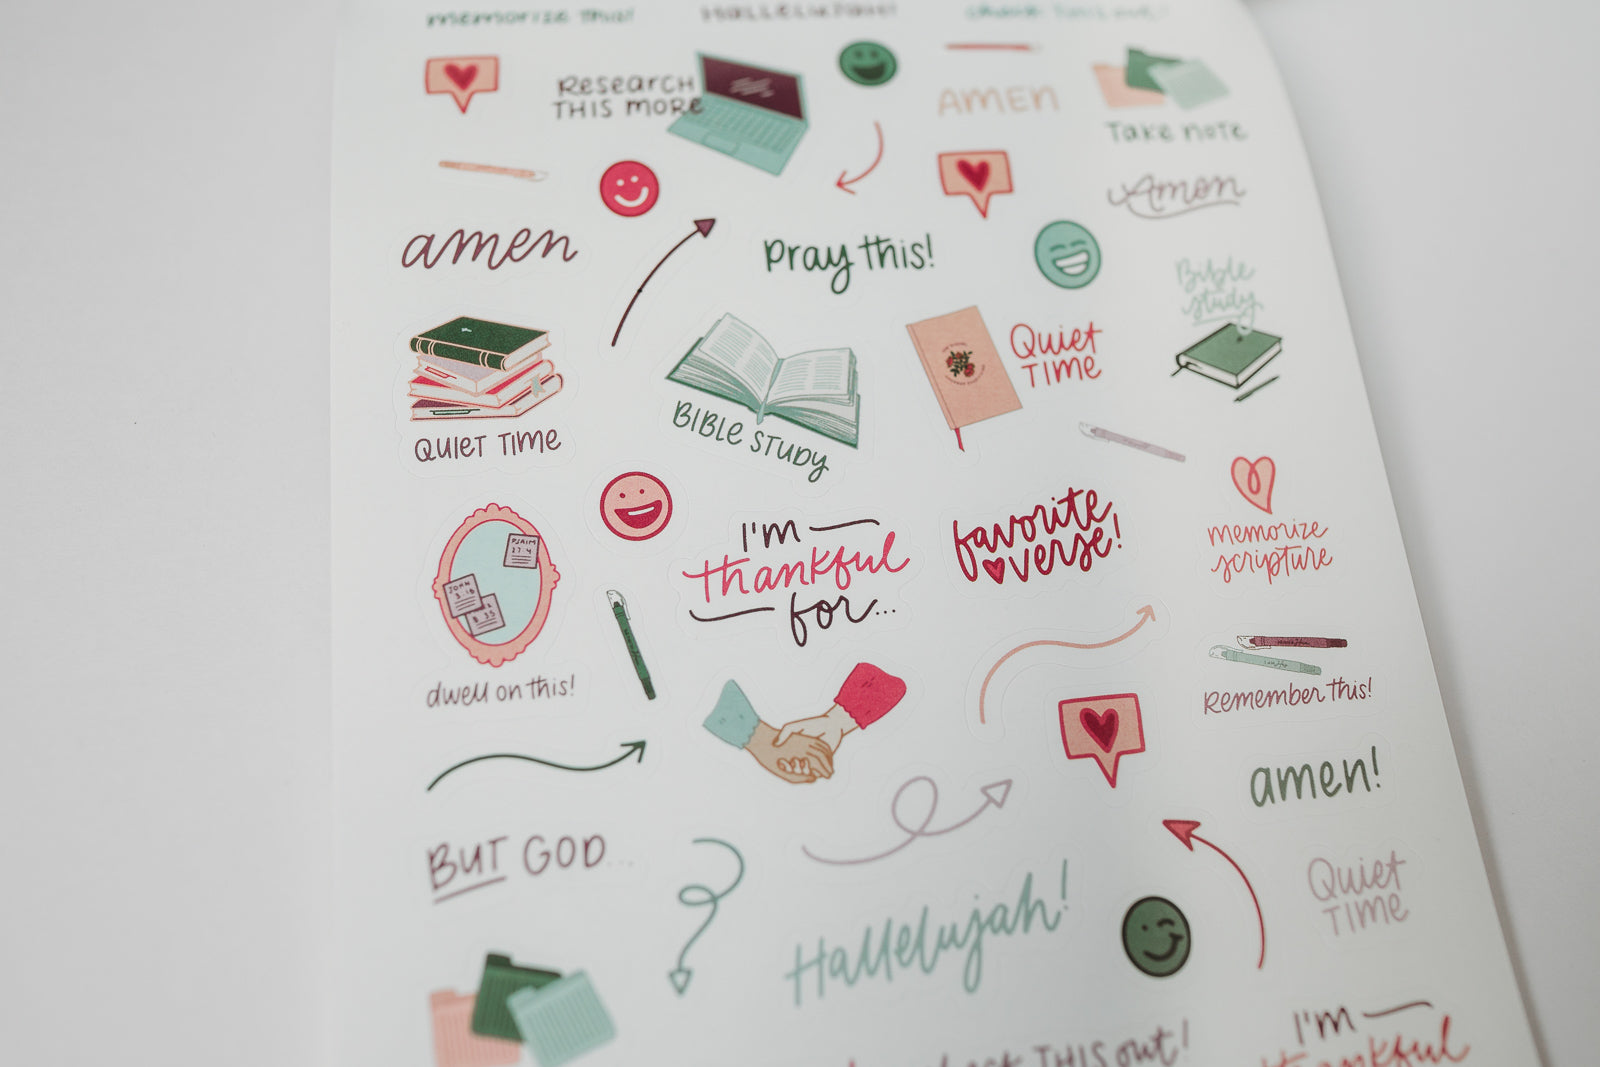 memorize this!
Hallelujah!
RESEARCH
THIS MORE
AMEN
Take note
Amen
amen
pray this!
Bible
study
Quiet
TIME
QUIET TIME
BIBLE STUDY
PSALM
27:4
JOHN
3:16
I'M
thankful
for...
favorite
verse!
memorize
scripture
dwell on this!
Remember this!
amen!
BUT GOD...
Hallelujah!
Quiet
TIME
THIS out!
I'M
thankful